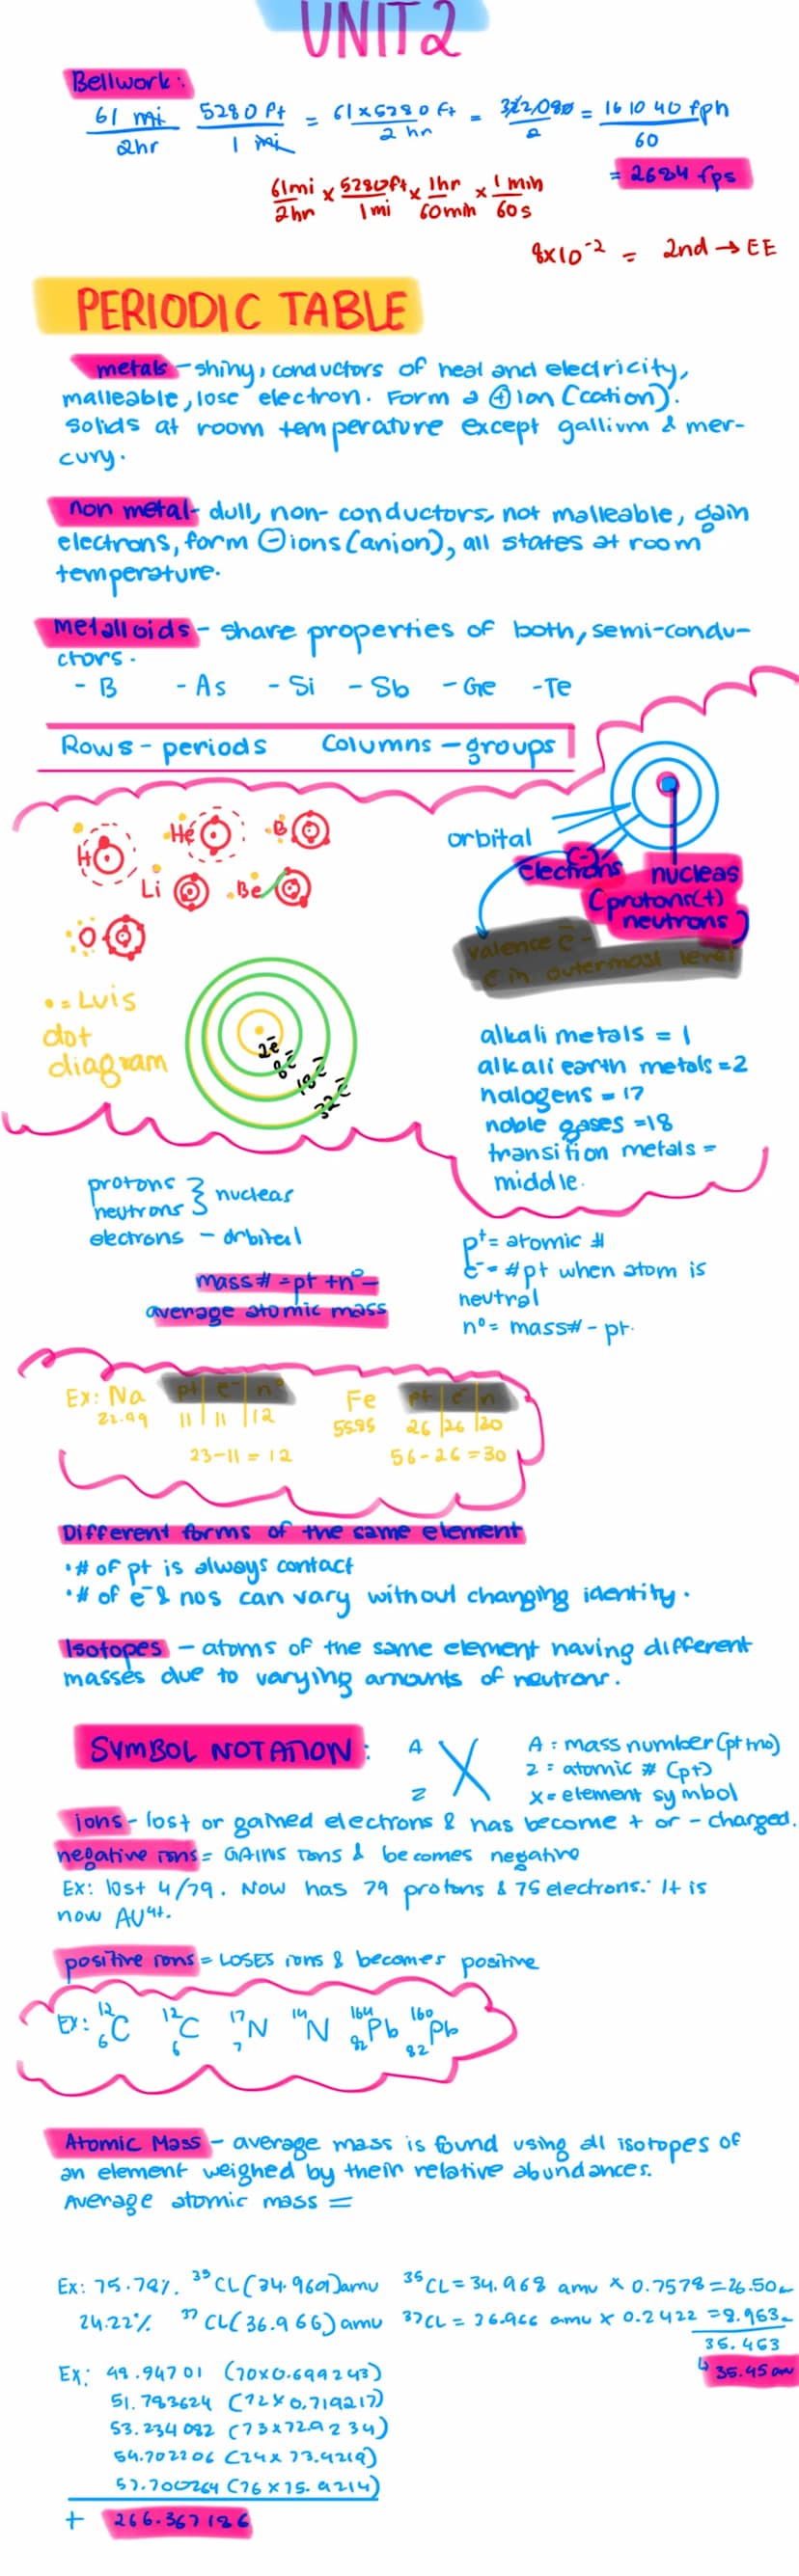 UNIT 2
Bellwork:
61 mi 5280 ft = 61 x 5280 ft = 322,080 = 161040 fph
2hr 1 mi 2 hr 2 60
= 2684 fps
61mi x 5280ft x 1hr x 1 min
2hr 1mi 60min 60s
8x10⁻² = 2nd → EE
PERIODIC TABLE
metals - shiny, conductors of heat and electricity,
malleable, lose electron. Form a ⊕ ion (cation).
Solids at room temperature except gallium & mer-
cury.
non metal - dull, non-conductors, not malleable, gain
electrons, form ⊖ ions (anion), all states at room
temperature.
metalloids - share properties of both, semi-condu-
ctors.
- B - As - Si - Sb - Ge - Te
Rows - periods Columns - groups
H He B
Li Be
O
orbital
electrons (-)
nucleas
(protons(+)
neutrons)
valence e⁻ -
e⁻ in outermost level
• = Luis
dot
diagram
2e⁻
8e⁻
18e⁻
32e⁻
alkali metals = 1
alkali earth metals = 2
halogens = 17
noble gases = 18
transition metals =
middle.
protons } nuclear
neutrons
electrons - orbital
mass# = p+ + n° -
average atomic mass
p⁺ = atomic #
e⁻ = # p+ when atom is
neutral
n° = mass# - p+.
Ex: Na p+ | e⁻ | n° Fe p+ | e⁻ | n
22.99 11 | 11 | 12 55.85 26 | 26 | 30
23-11 = 12 56-26 = 30
Different forms of the same element
• # of p+ is always contact
• # of e⁻ & nos can vary without changing identity.
Isotopes - atoms of the same element having different
masses due to varying amounts of neutrons.
SYMBOL NOTATION: A X A = mass number (p+ + no)
Z Z = atomic # (p+)
X = element symbol
ions - lost or gained electrons & has become + or - charged.
negative ions = GAINS ions & becomes negative
Ex: lost 4/79. Now has 79 protons & 75 electrons. It is
now AU⁴⁺.
positive ions = LOSES ions & becomes positive
Ex: ¹²₆C ¹²₆C ¹⁷₇N ¹⁴N ¹⁶⁴₈₂Pb ¹⁶⁰₈₂Pb
Atomic Mass - average mass is found using all isotopes of
an element weighed by their relative abundances.
Average atomic mass =
Ex: 75.78% ³⁵CL amu ³⁵CL = 34.968 amu x 0.7578 = 26.50
24.22% ³⁷CL (36.966) amu ³⁷CL = 36.966 amu x 0.2422 = 8.953
35.453
↳ 35.45 am
Ex: 48.94701 (70x0.699243)
51.783624 (72x0.719217)
53.234082 (73x72.9234)
54.702206 (74x73.9219)
57.700264 (76x75.9214)
+ 266.367186